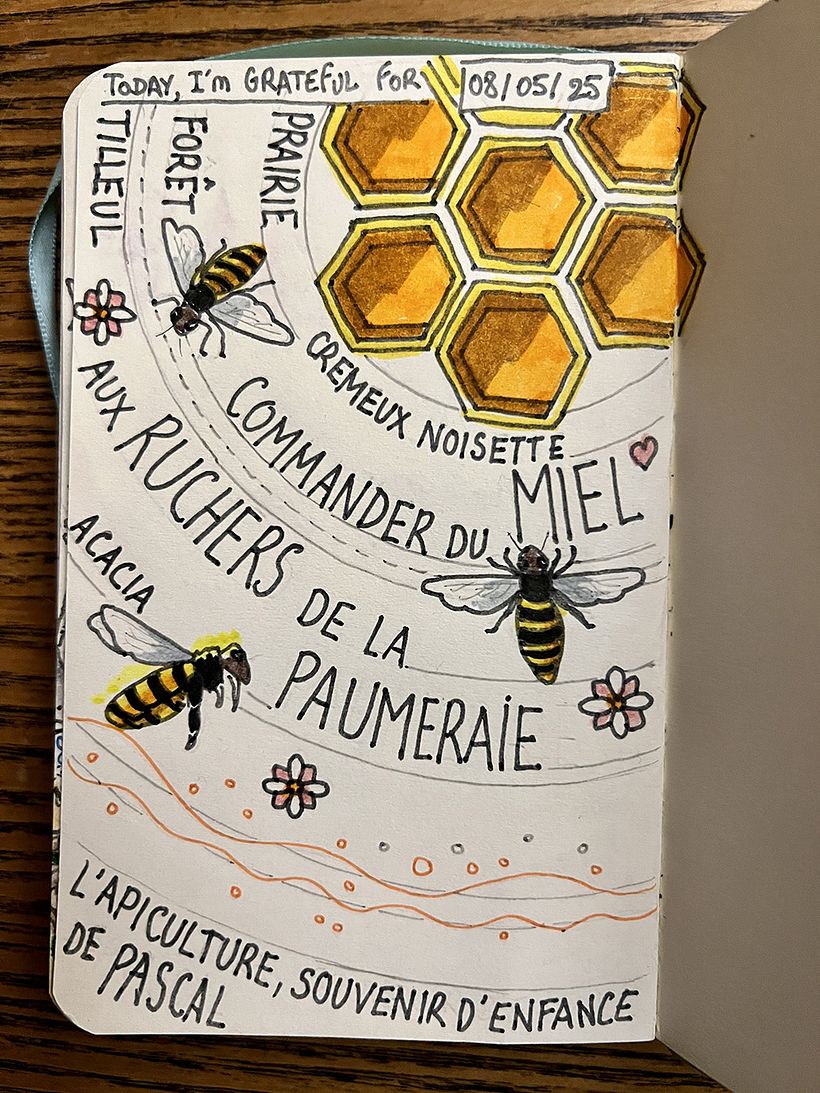 TODAY, I'M GRATEFUL FOR
08/05/25
TILLEUL
FORÊT
PRAIRIE
CREMEUX NOISETTE
COMMANDER DU MIEL
AUX RUCHERS DE LA PAUMERAIE
ACACIA
L'APICULTURE, SOUVENIR D'ENFANCE
DE PASCAL